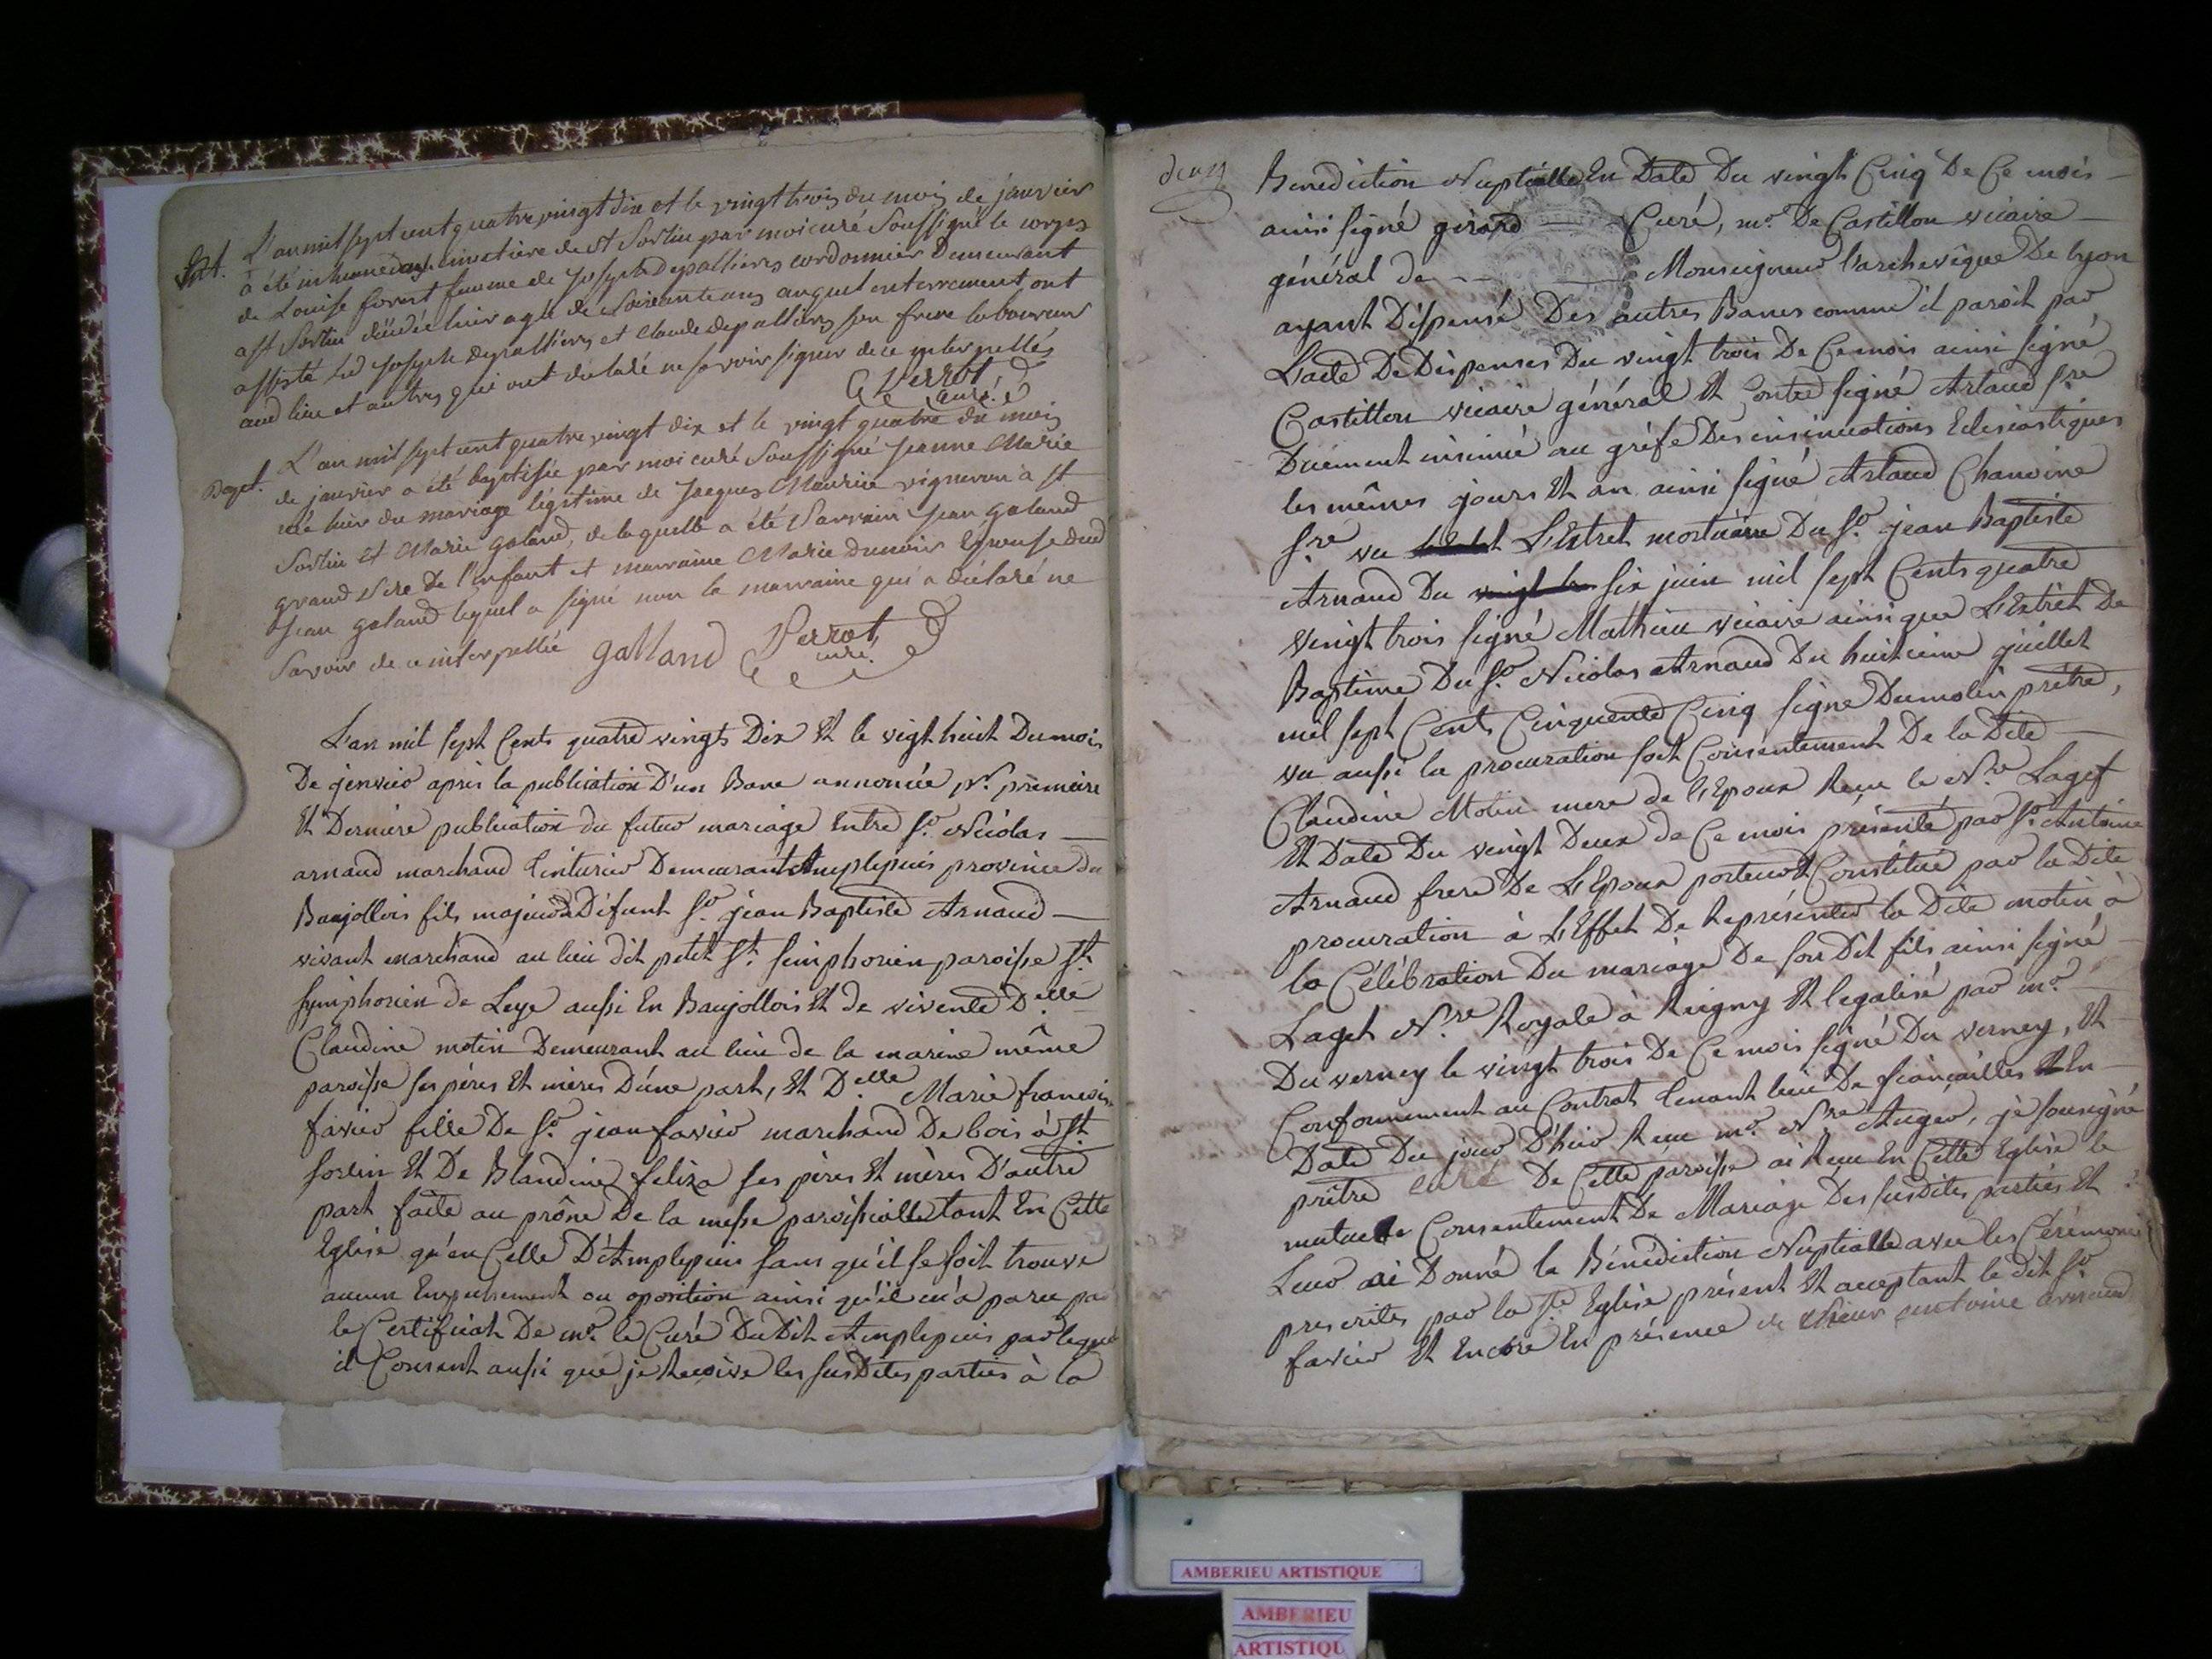 L'an mil sept cent quatre vingt dix et le vingt trois du mois de janvier
a été inhumé au cimetiere de st Sorlin par moi curé soussigné le corps
de Louise forest femme de Joseph Depalliers cordonnier Demeurant
a st Sorlin décédé hier agé de soixante ans auquel enterrement ont
assisté led Joseph depalliers et Claude depalliers son frere laboureur
aud lieu et autres qui ont déclaré ne savoir signer de ce interpellés
Perrot
curé
Bapt.
L'an mil sept cent quatre vingt dix et le vingt quatre du mois
de janvier a été baptisée par moi curé soussigné Jeanne Marie
née hier du mariage légitime de Jacques Maurice vigneron à st
Sorlin Et Marie galand, de laquelle a été Parrain Jean galand
grand Pere De l'enfant et marraine Marie dunoir Epouse dud
Jean galand lequel a signé non la marraine qui a déclaré ne
savoir de ce interpellée galland Perrot
curé
L'an mil sept Cents quatre vingts Dix Et le vigt huit Du mois
De jenvier après la publication D'un Banc annoncée pr. premiere
Et Derniere publication du futur mariage Entre Sr. Nicolas
arnaud marchand Tinturier Demeurant Amplepuis province du
Baujollois fils majeur Défunt Sr. jean Baptiste Arnaud
vivant marchand au lieu dit petit St. simphorien paroisse St.
symphorien de Leye aussi En Baujollois Et de vivente Delle.
Claudine motin Demeurant au lieu de la marine même
paroisse ses pères Et mères D'une part, Et Delle. Marie francoise
favier fille De Sr. jean favier marchand De bois à St.
sorlin Et De Blandine feliza ses pères Et mères D'autre
part faite au prône De la messe paroissialle tant En Cette
Eglise qu'en Celle D'Amplepuis sans qu'il se soit trouvé
aucun Empechement ou oposition ainsi qu'il m'a paru par
le Certificat De mr. le Curé DuDit Amplepuis par lequel
il Consent aussi que je Recoive les susDites parties à la
deux
Benediction Nuptialle En Date Du vingt Cinq De Ce mois
ainsi signé girard Curé, mr. De Castillon vicaire
général de Monseigneur l'archevêque De lyon
ayant Dispensé Des autres Bancs comme il paroit par
L'acte De Dispenses Du vingt trois De Ce mois ainsi signé
Castillon vicaire général Et Contre signé Artaud sre
Duement insinué au gréfe Des insinuations Eclesiastiques
les mêmes jours Et an ainsi signé Artaud Chanoine
sre vu L'Extret mortuaire Du Sr. jean Baptiste
Arnaud Du six juin mil sept Cents quatre
vingt trois signé Mathieu vicaire ainsi que L'Extret De
Baptême Du Sr. Nicolas Arnaud Du huitieme juillet
mil sept Cents Cinquente Cinq signé Dumolin prêtre,
vu aussi la procuration soit Consentement De la Dite
Claudine Motin mere de l'Epoux Reçu le Nre Laget
Et Date Du vingt Deux de Ce mois présenté par Sr. Antoine
Arnaud frere De L'Epoux porteur Et Constitué par la Dite
procuration à L'Effet De Représenter la Dite motin à
la Célébration Du mariage De son Dit fils ainsi signé
Laget Nre Royale à Reigny Et legalisé par mr.
Du verney le vingt trois De Ce mois signé Du verney, Et
Conformement au Contrat Tenant lieu De fiançailles En
Date Du jour D'hier Reçu mr. Nre Auger, je sousigné
prêtre curé De Cette paroisse ai Reçu En Cette Eglise le
mutuele Consentement De Mariage Des susdites parties Et
Leur ai Donné la Bénédiction Nuptialle avec les Cérémonies
prescrites par la Ste Eglise présent Et acceptant le dit Sr.
favier Et Encore En présence de sieur antoine arnaud
AMBERIEU ARTISTIQUE
AMBERIEU
ARTISTIQU